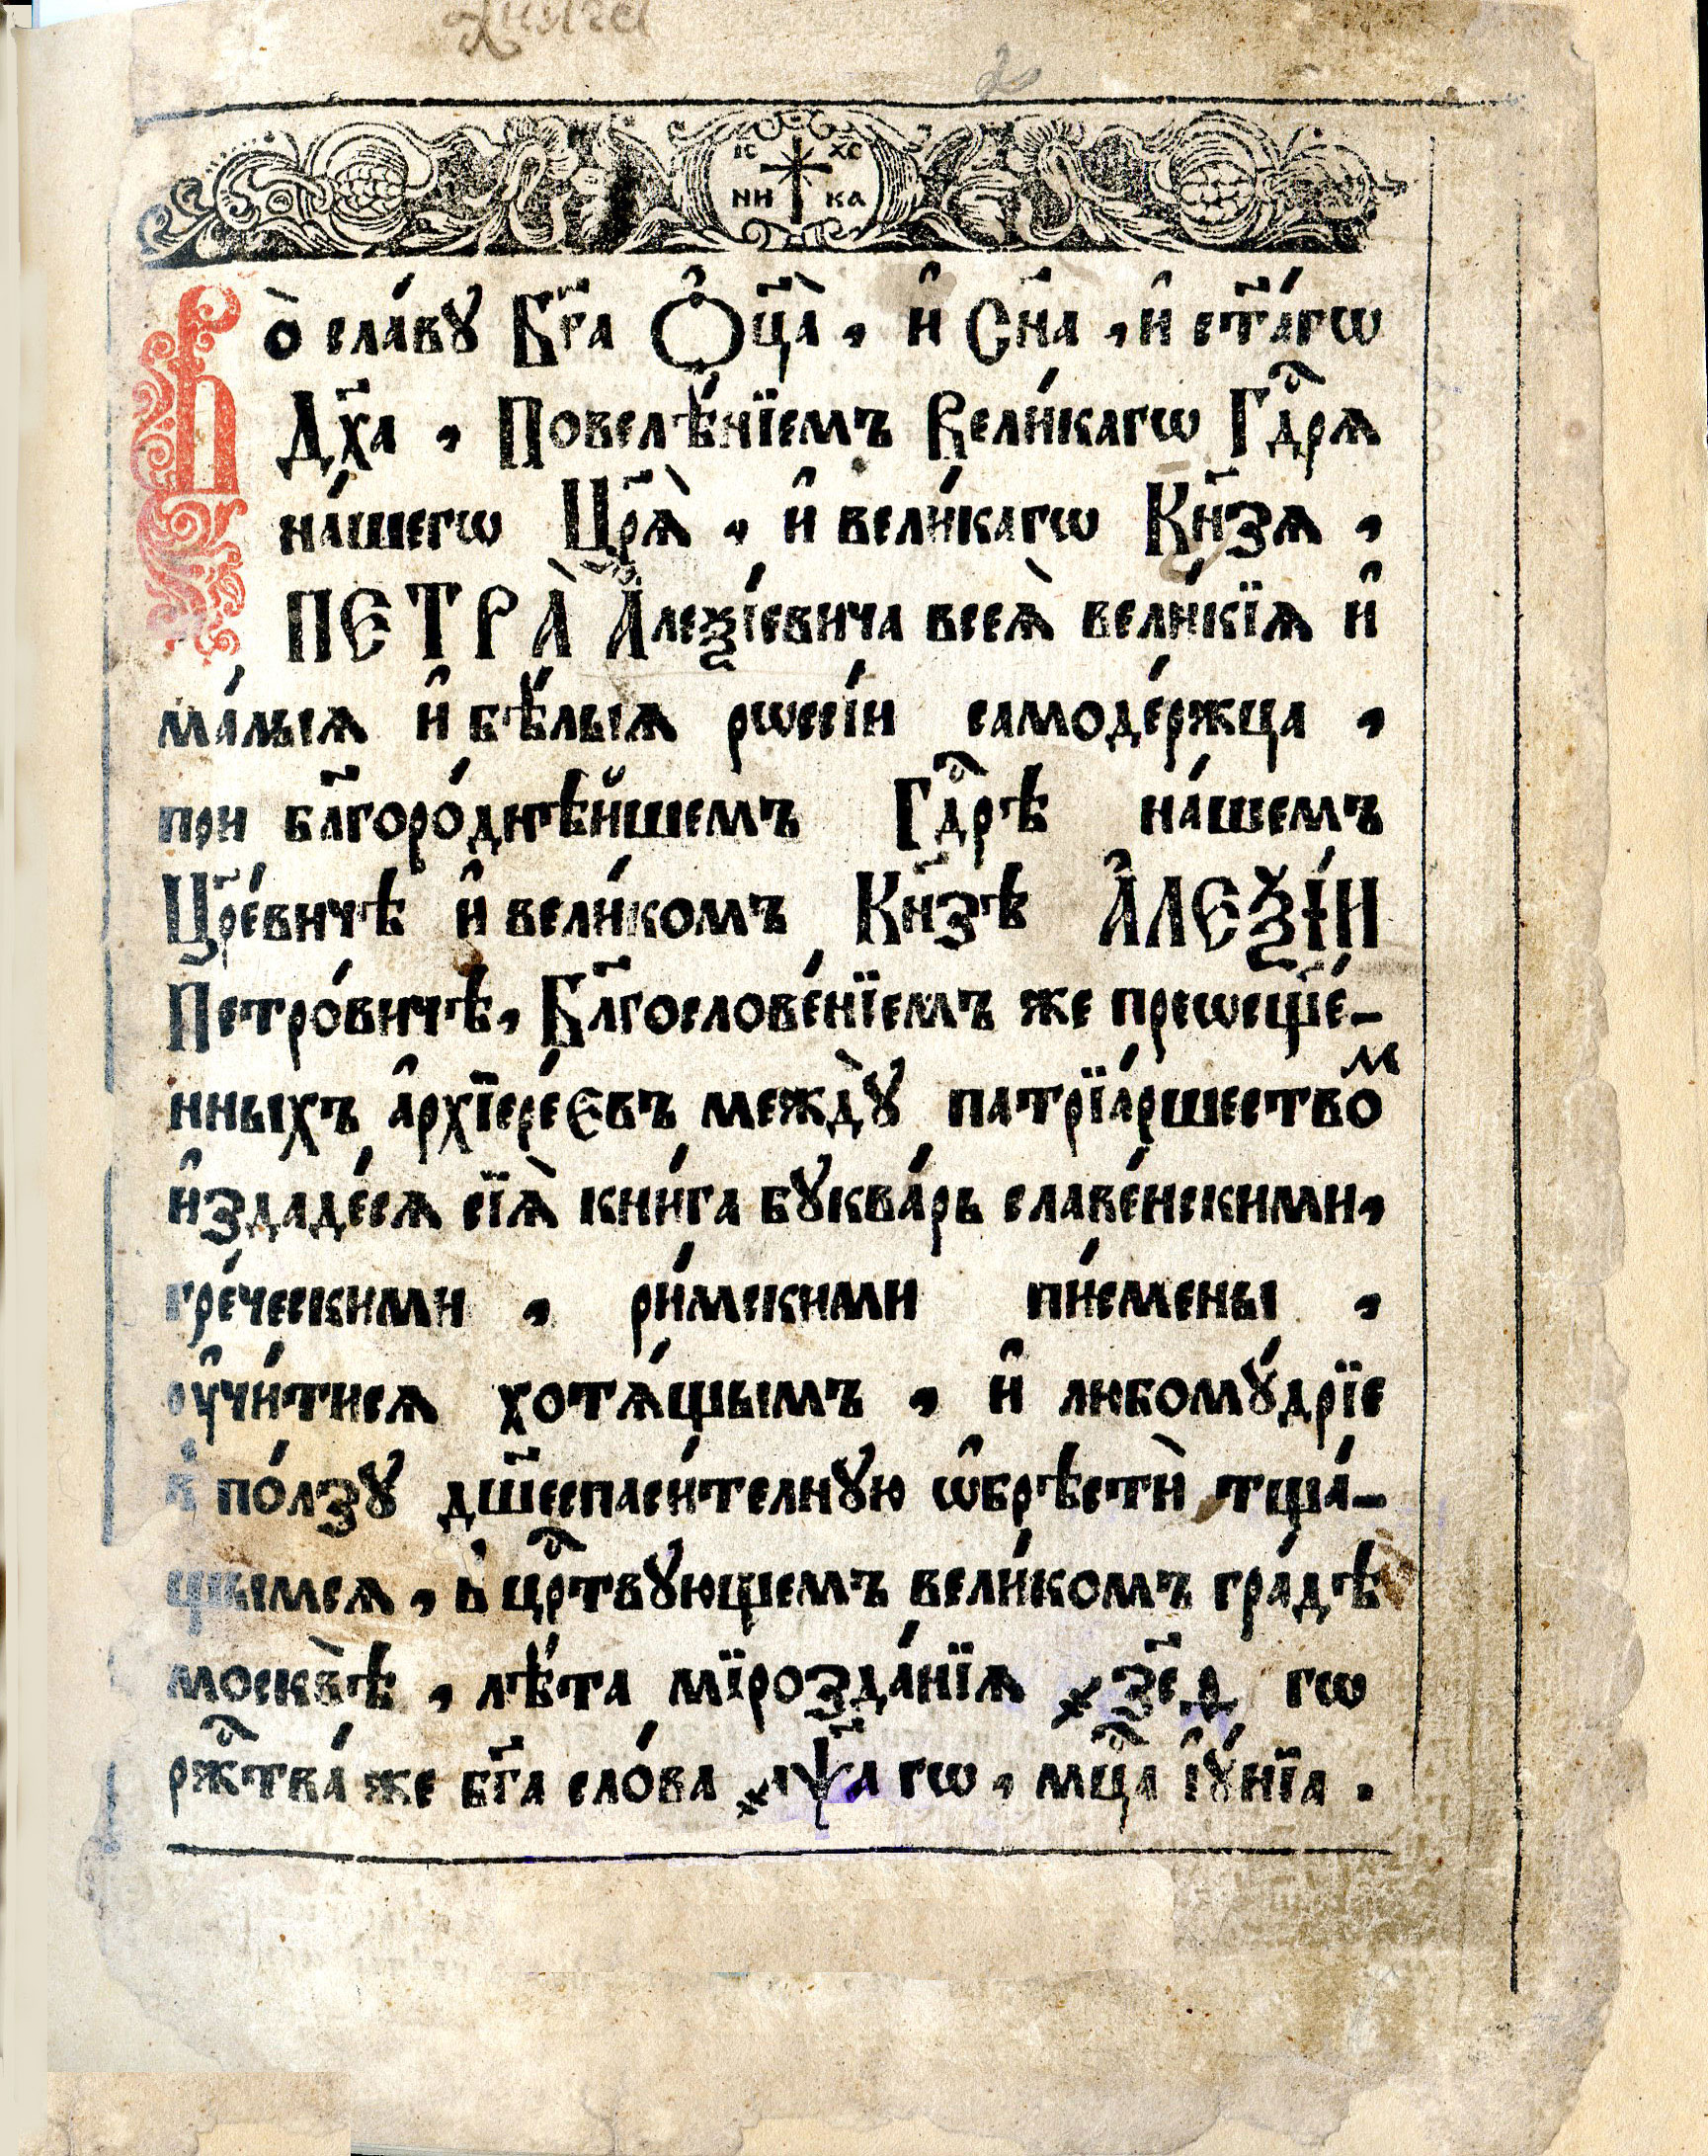 Книга
2
ІС ХС
НИ КА
Во̀ сла́вꙋ Бг҃а Ѻ҆ц҃а̀, и҆ Сн҃а, и҆ ст҃а́гѡ
Дх҃а, Повелѣ́нїемъ Вели́кагѡ Гдⷭ҇рѧ
на́шегѡ Цр҃ѧ̀, и҆ вели́кагѡ Кн҃зѧ,
ПЕТРА̀ А҆леѯі́евича всеѧ̀ вели́кїѧ и҆
ма́лыѧ и҆ бѣ́лыѧ рѡссі́и самоде́ржца,
при бл҃горо́днѣйшемъ Гдⷭ҇рѣ на́шемъ
Цр҃е́вичѣ и҆ вели́комъ Кн҃зѣ А҆ЛЕѮІ́И
Петро́вичѣ, Бл҃гослове́нїемъ же преѡсщ҃е́-
нныхъ а҆рхїере́євъ междꙋ̀ патрїа́ршествоⷨ
и҆здаде́сѧ сїѧ̀ кни́га бꙋква́рь славе́нскими,
гре́ческими, ри́мскими пи́смены,
оу҆чи́тисѧ хотѧ́щымъ, и҆ любомꙋ́дрїе
в по́лзꙋ дш҃еспаси́телнꙋю ѡ҆брѣстѝ тща́-
щымсѧ, в црⷭ҇твꙋющемъ вели́комъ гра́дѣ
москвѣ̀, лѣ́та мїрозда́нїѧ ҂зс҃ѳ гѡ
ржⷭ҇тва́ же бг҃а сло́ва ҂аѱ҃а гѡ, мцⷭ҇а і҆ꙋ́нїа.